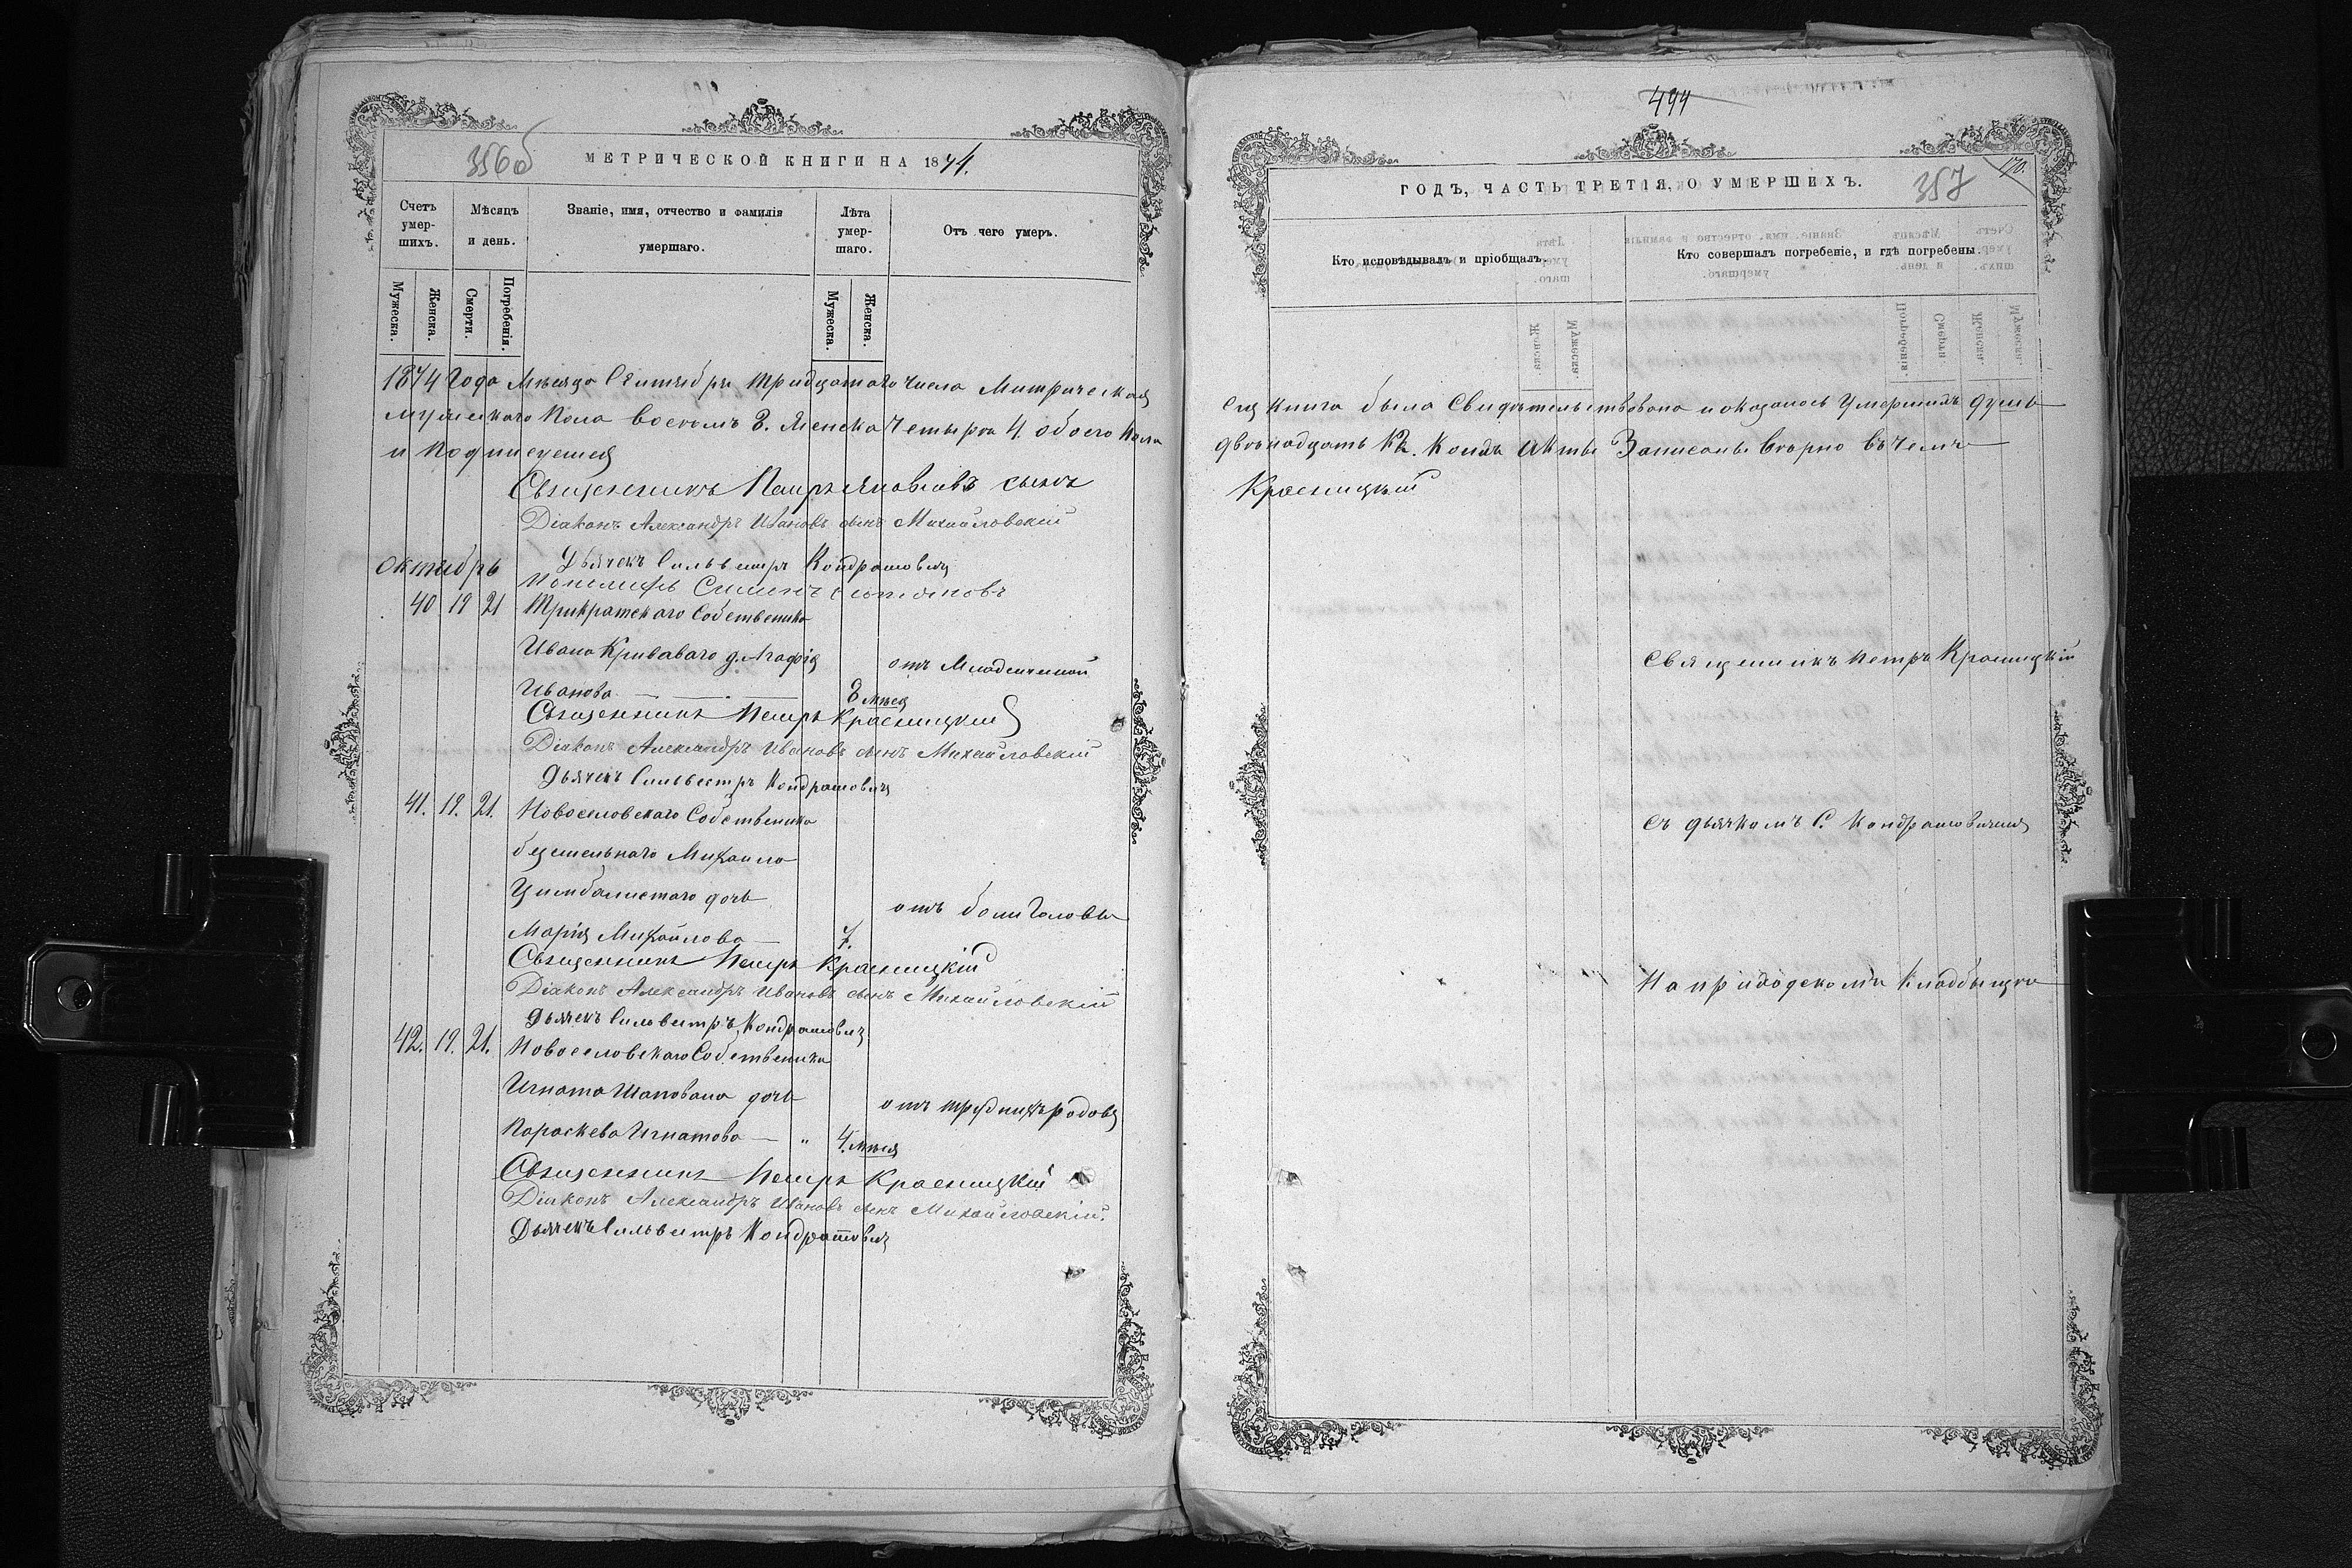 356об
МЕТРИЧЕСКОЙ КНИГИ НА 1874.
Счетъ умер-шихъ.
Мѣсяцъ и день.
Званіе, имя, отчество и фамилія умершаго.
Лѣта умер-шаго.
Отъ чего умеръ.
Мужеска.
Женска.
Смерти.
Погребенія.
Мужеска.
Женска.
1874 Года Мѣсяца Сентября Тридцатаго Числа Митрическая
мужескаго Пола восемъ 8. Женска Четыре 4 обоего Пола
и Подписуемся
Священникъ Петръ сынъ
Діаконъ Александръ Ивановъ сынъ Михайловскій
Дьячекъ Сильвестръ Кондратовичъ
Октябрь
40 19 21 Трикратскаго Собственика
Ивана Криваваго д. Агафія
отъ Младенческой
Иванова 8 мѣся
Священникъ Петръ Красницкій
Діаконъ Александръ Ивановъ сынъ Михайловскій
Дьячекъ Сильвестръ Кондратовичъ
41. 19. 21. Новоселовскаго Собственика
безземельнаго Михаила
Цимбалистаго дочь
отъ боли Головы
Марія Михайлова 7.
Священникъ Петръ Красницкій
Діаконъ Александръ Ивановъ сынъ Михайловскій
Дьячекъ Сильвестръ Кондратовичъ
42. 19. 21. Новоселовскаго Собственика
Игната Шаповала дочь
отъ трудныхъ родовъ
Параскева Игнатова „ 4. мѣся
Священникъ Петръ Красницкій
Діаконъ Александръ Ивановъ сынъ Михайловскій.
Дьячекъ Сильвестръ Кондратовичъ
494
ГОДЪ, ЧАСТЬ ТРЕТІЯ, О УМЕРШИХЪ.
357
170.
Кто исповѣдывалъ и пріобщалъ.
Кто совершалъ погребеніе, и гдѣ погребены.
сія книга была Свидѣтельствована и оказалось Умершихъ душъ
двенадцать 12. Коихъ Акты Записаны вѣрно въ чемъ
Красницкій
Священникъ Петръ Красницкій
съ дьячкомъ С. Кондратовичемъ
На приходскомъ Кладбыще